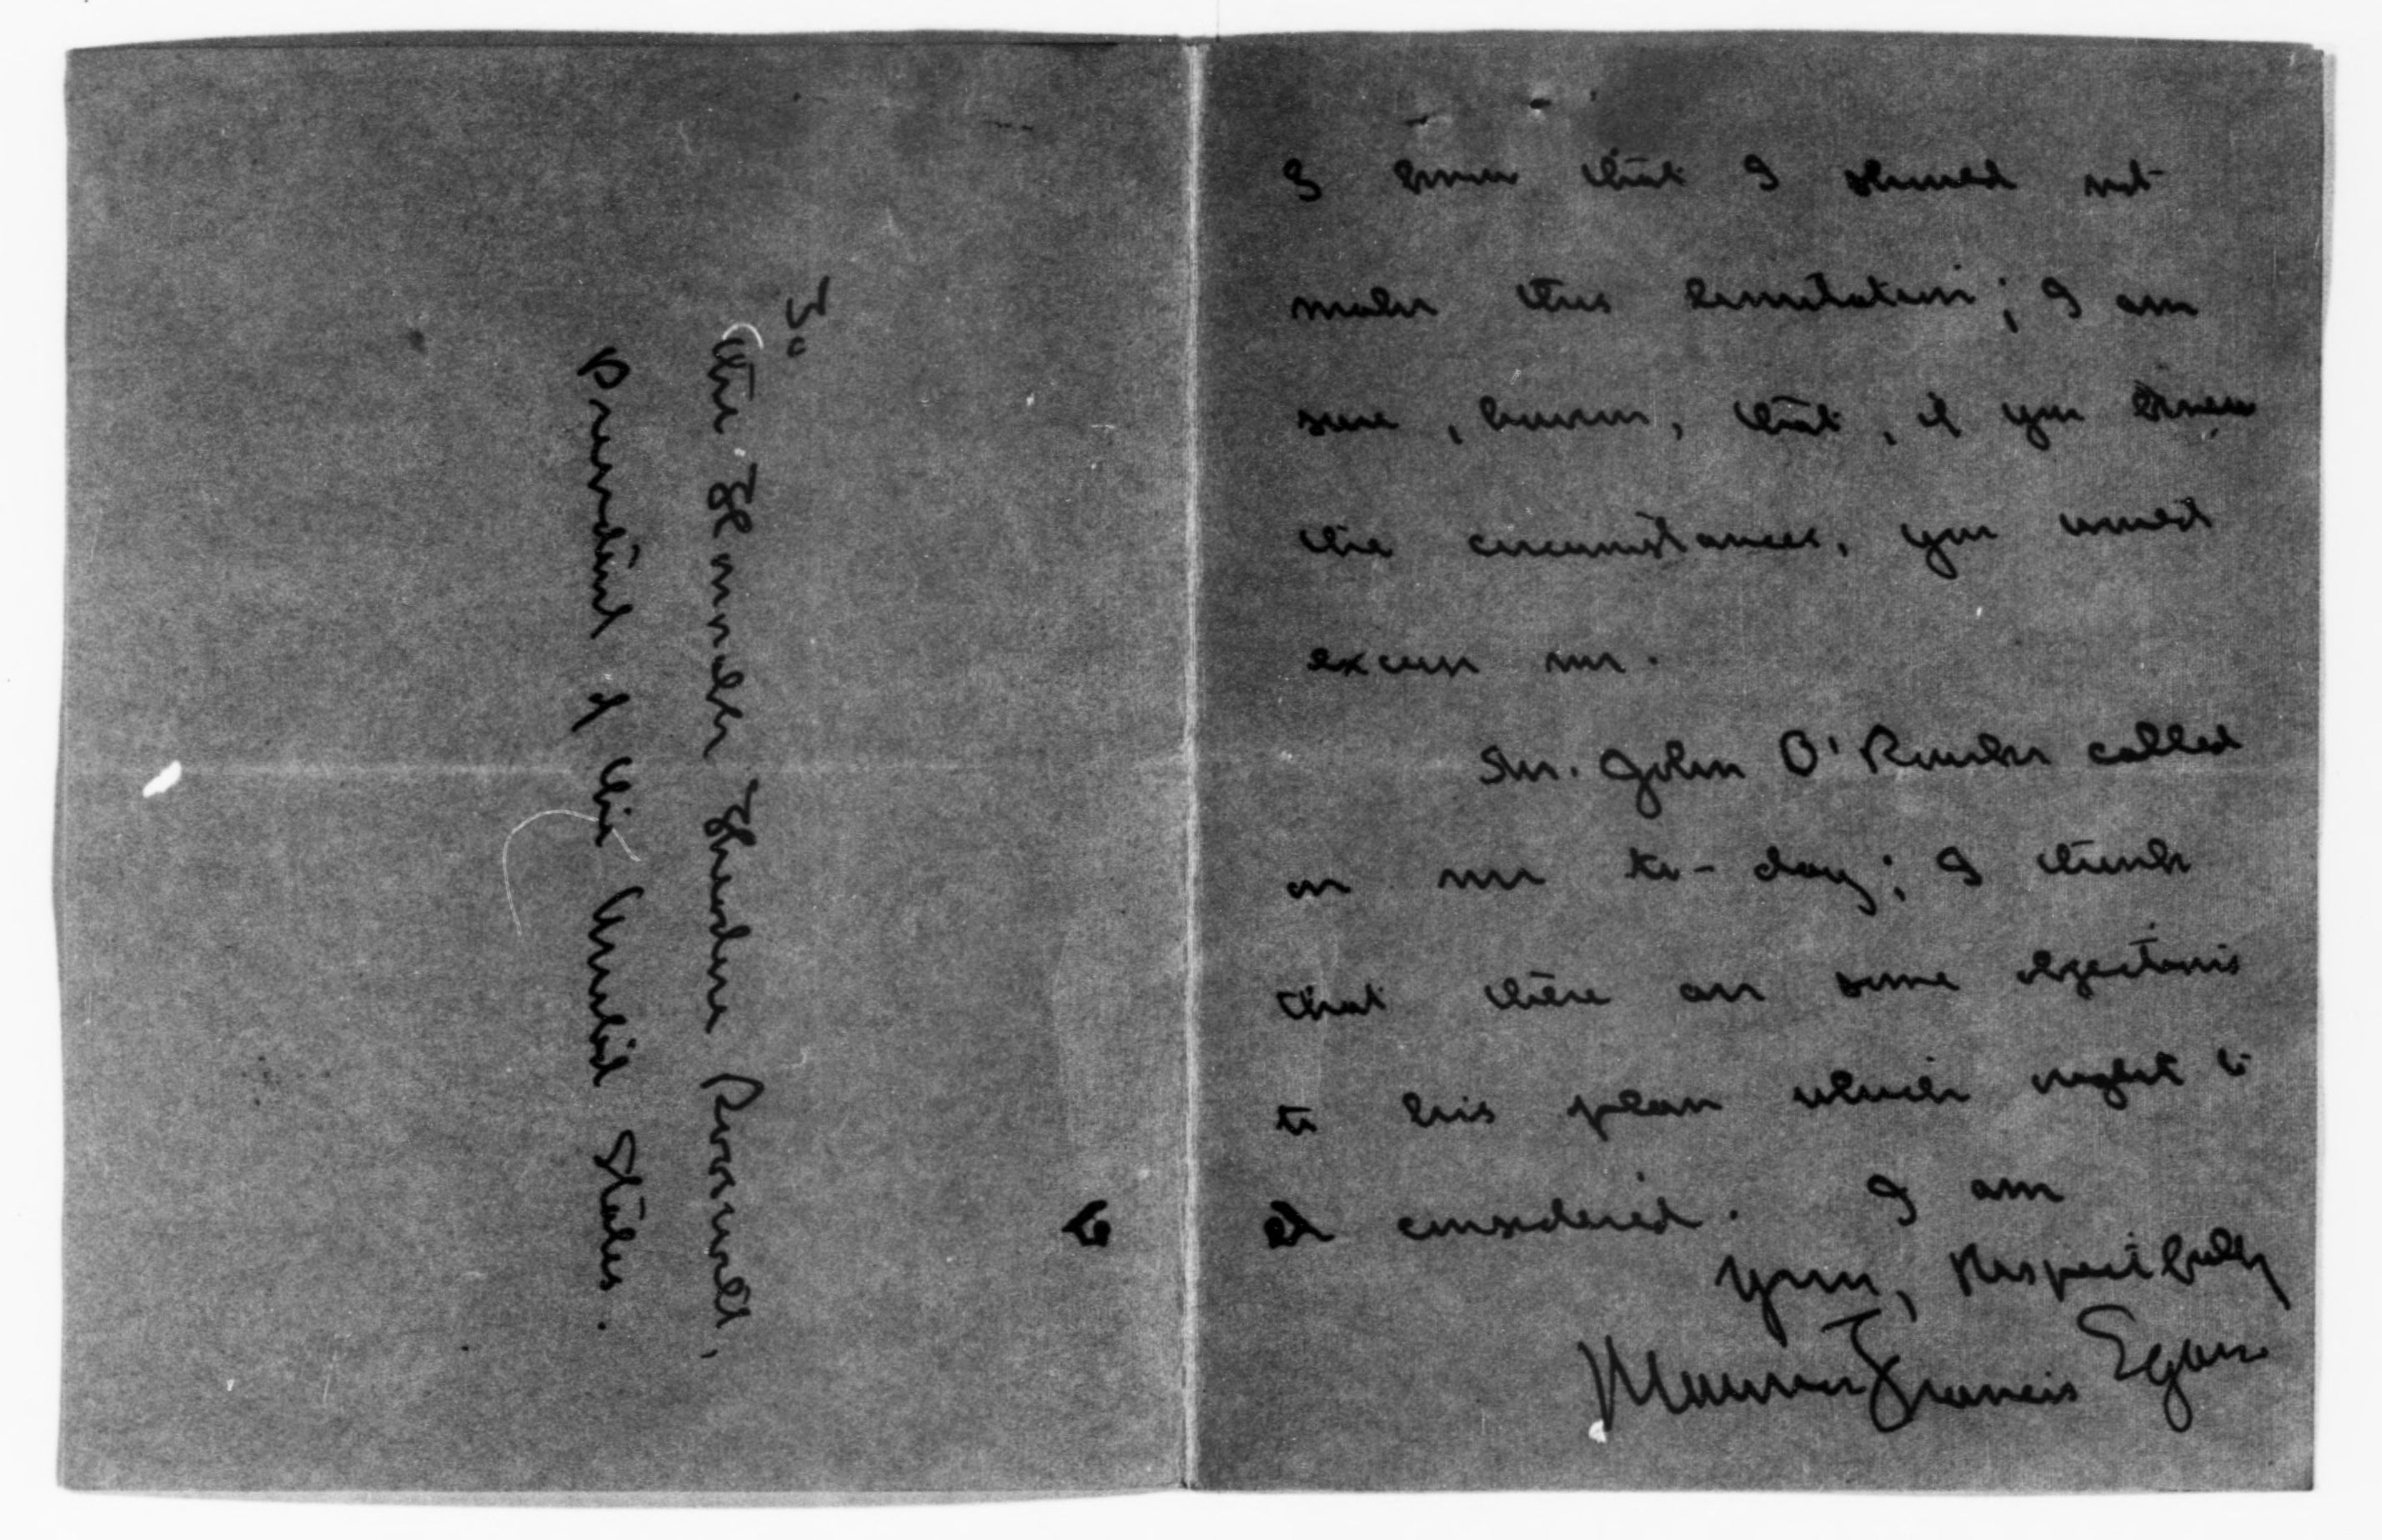 To
The Honorable Theodore Roosevelt,
President of the United States.
I know that I should not
make this limitation; I am
sure, however, that, if you knew
the circumstances, you would
excuse me.
Mr. John O'Rourke called
on me to-day; I think
that there are some objections
to his plan which ought to
be considered. I am
Yours, Respectfully
Maurice Francis Egan